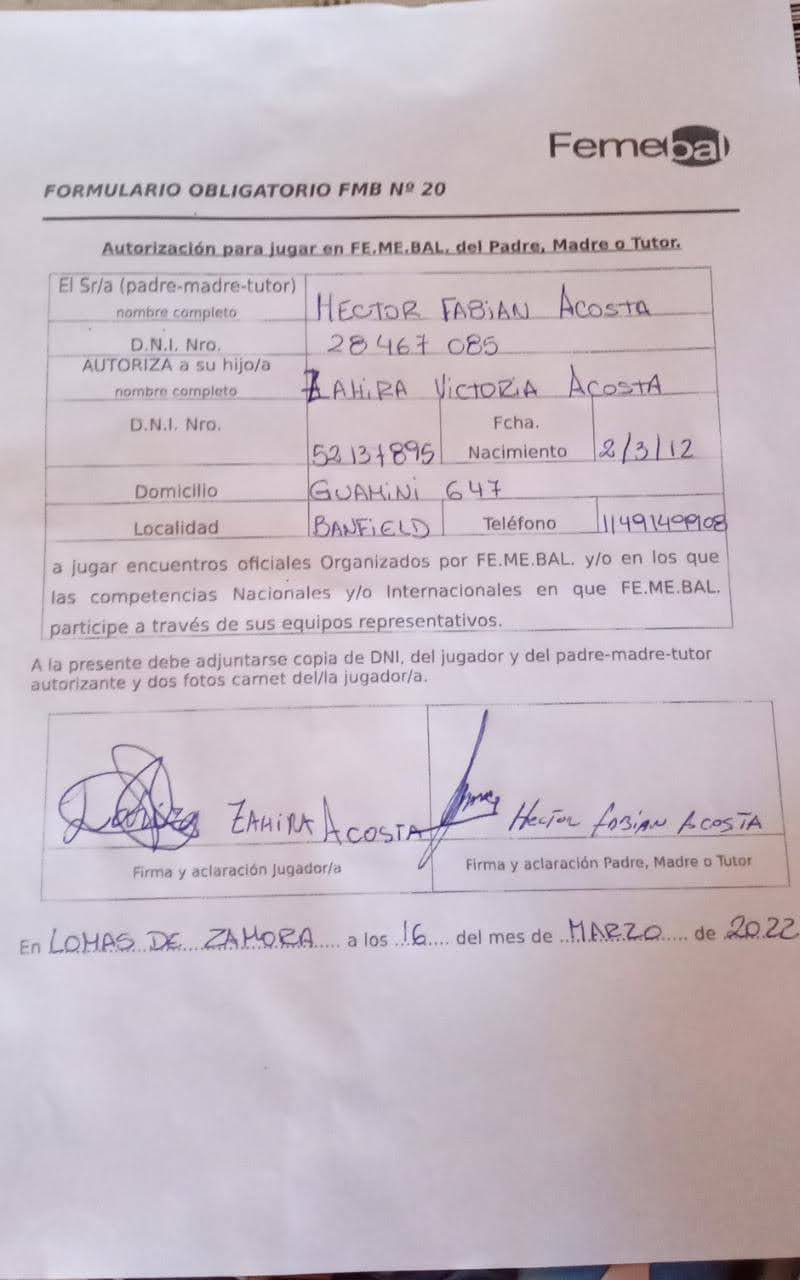 Femebal
FORMULARIO OBLIGATORIO FMB Nº 20
Autorización para jugar en FE.ME.BAL. del Padre, Madre o Tutor.
El Sr/a (padre-madre-tutor) nombre completo HECTOR FABIAN ACOSTA
D.N.I. Nro. 28 467 085
AUTORIZA a su hijo/a nombre completo ZAHIRA VICTORIA ACOSTA
D.N.I. Nro. 52137895 Fcha. Nacimiento 2/3/12
Domicilio GUAMINI 647
Localidad BANFIELD Teléfono
a jugar encuentros oficiales Organizados por FE.ME.BAL. y/o en los que
las competencias Nacionales y/o Internacionales en que FE.ME.BAL.
participe a través de sus equipos representativos.
A la presente debe adjuntarse copia de DNI, del jugador y del padre-madre-tutor
autorizante y dos fotos carnet del/la jugador/a.
ZAHIRA ACOSTA Hector FABIAN ACOSTA
Firma y aclaración Jugador/a Firma y aclaración Padre, Madre o Tutor
En LOMAS DE ZAMORA..... a los ..16.... del mes de ..MARZO..... de 2022